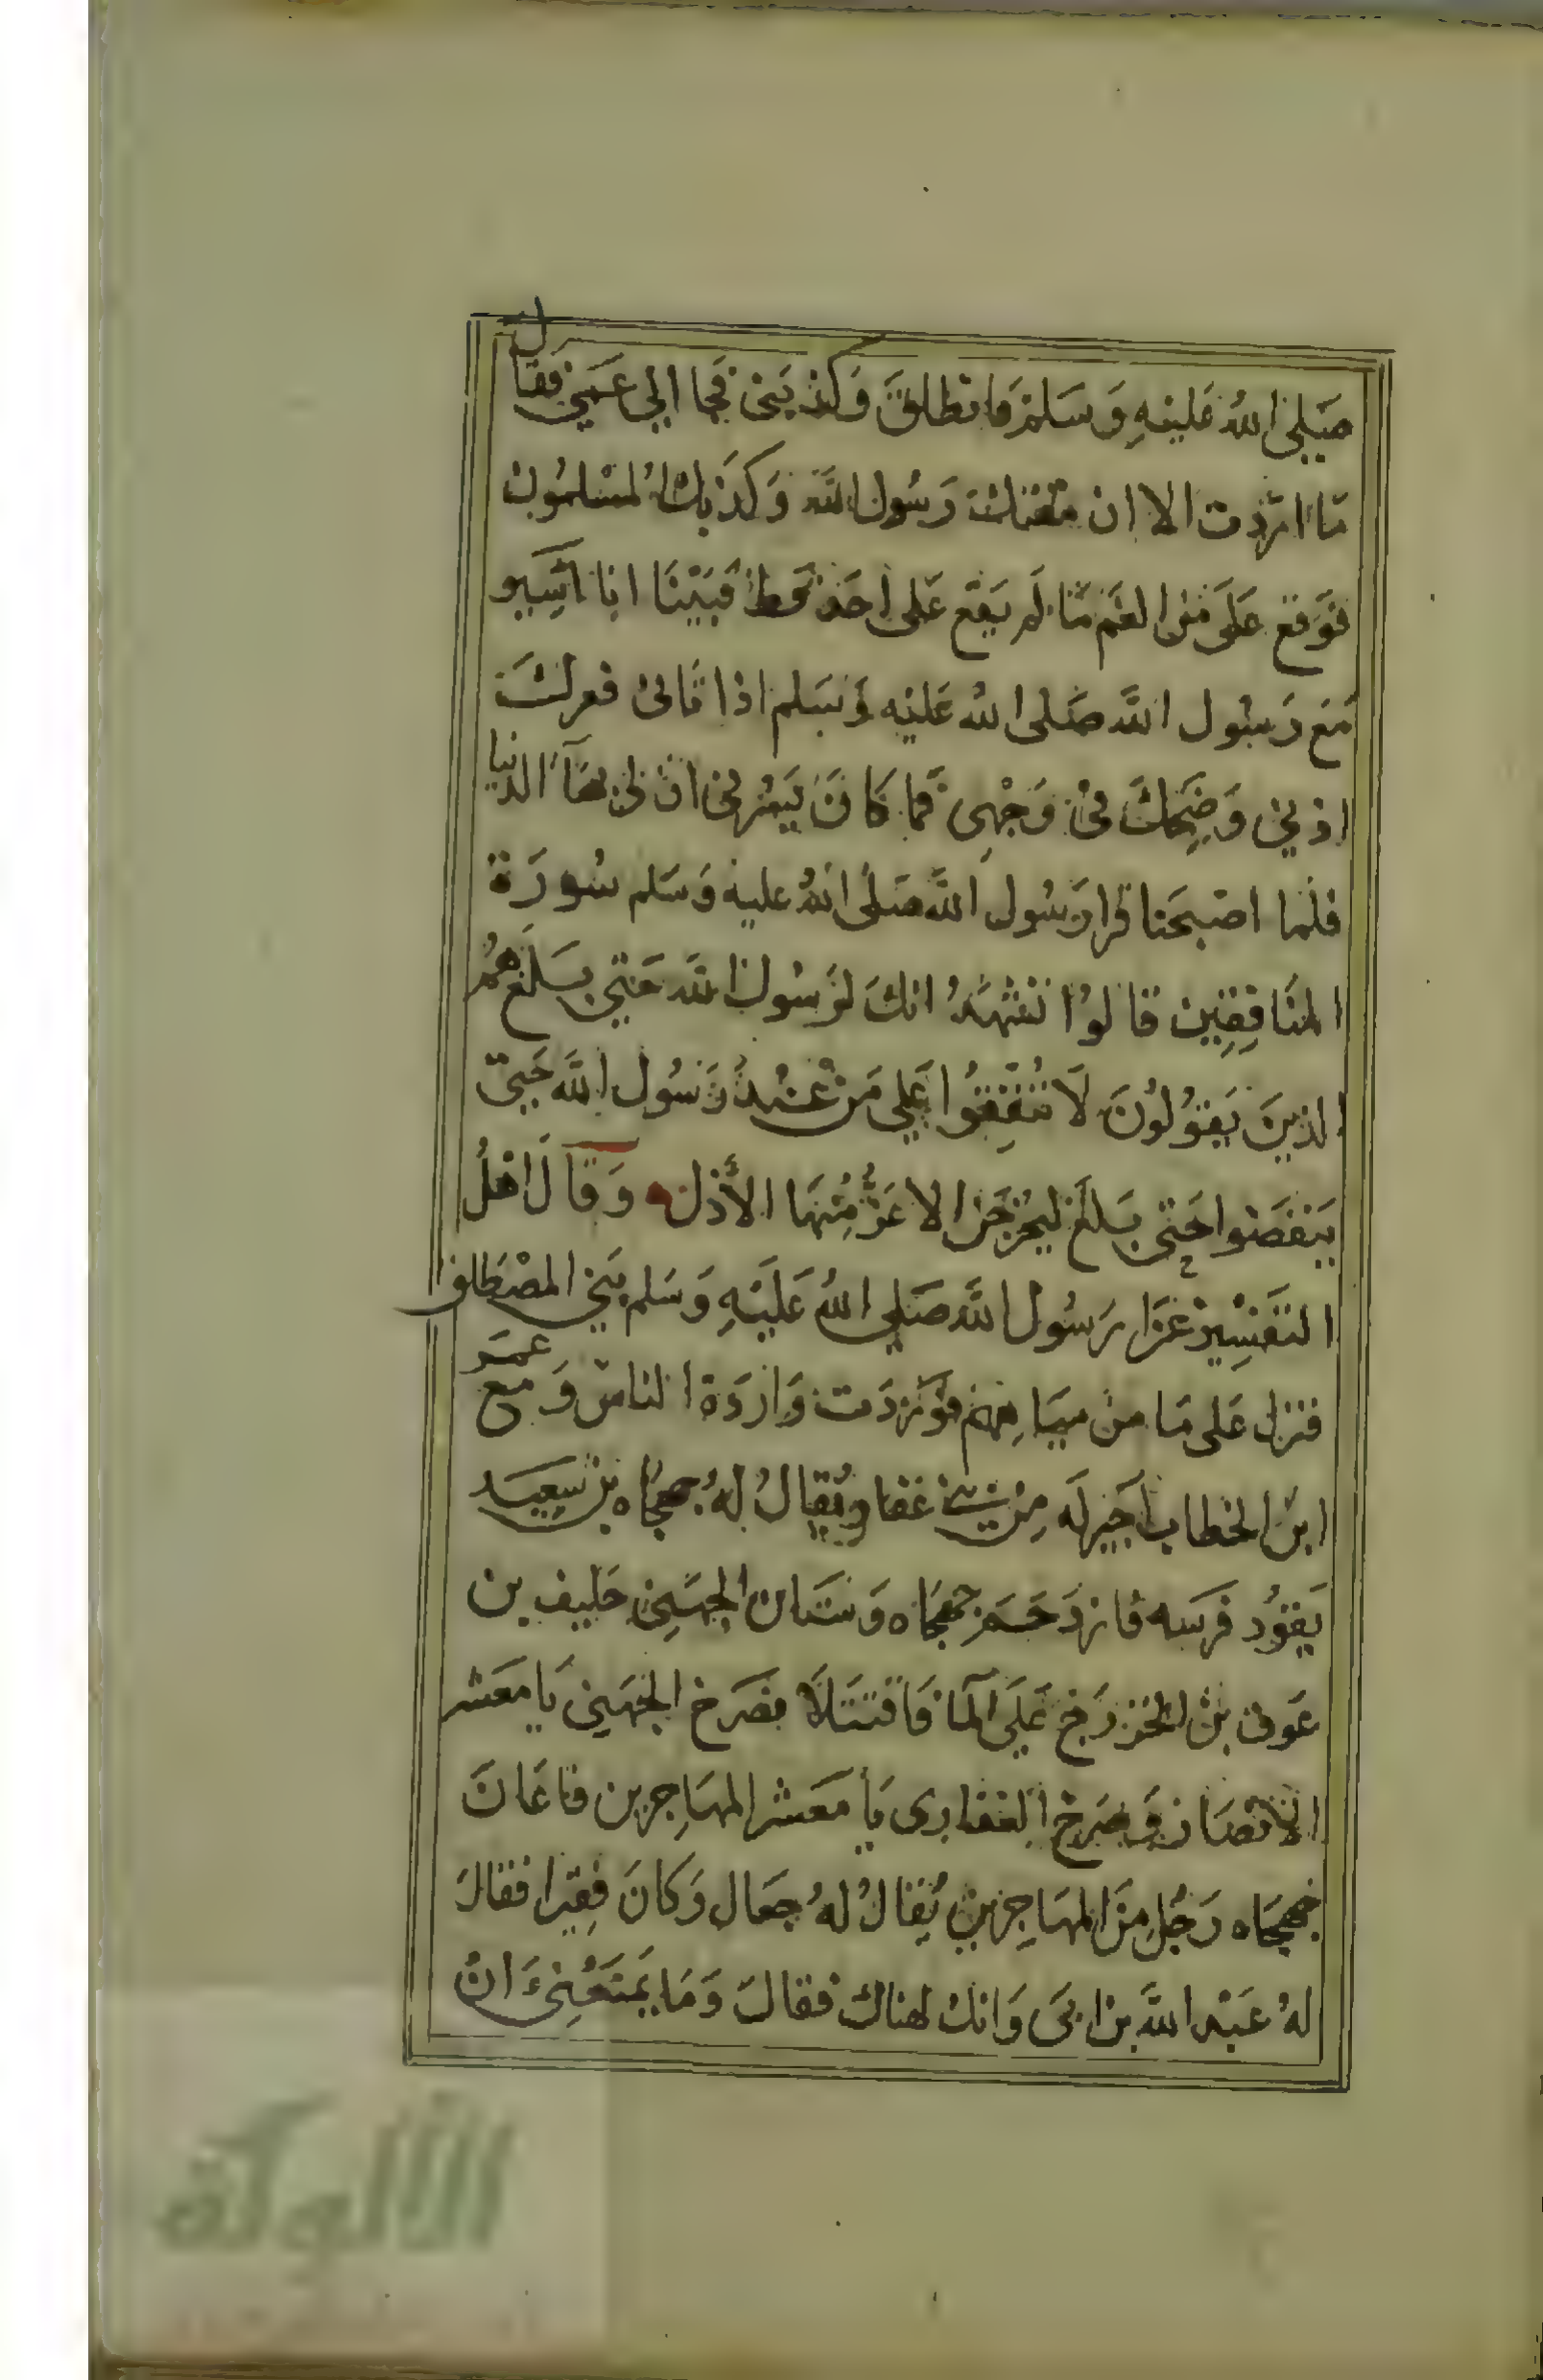 صَلي اللهُ عَلينهِ وَسَلمَ فانطلقَ وَكذبَني فجا الي عَمي فقال
مَا ارَدت الا ان مقتك رَسُول اللَّه وَكذبك المسْلمُون
فوَقع عَلَي من الغَم مَا لم يَقع عَلى احَد قط فبَيْنَا انا اسِير
مَع رَسُول اللَّه صَلى اللهُ عَليْه وَسَلم اذ اتانى فعرك
اذني وَضحِكَ في وَجْهِى فما كَانَ يَسُرني ان لي بهَا الدنيا
فلما اصْبحَنا قرا رَسُول اللَّه صَلى اللهُ عليه وَسَلم سُورَة
المنَافِقِين قالوُا نَشهَدُ انكَ لرَسُول اللَّه حَتي بَلغ هُمُ
الذينَ يَقوُلوُنَ لَا تُنْفِقُوا عَلي مَنْ عنْدَ رَسُول اللَّه حَتيّ
يَنفَضوا حَتى بَلغَ ليُخرجَن الاعَزُّ مِنْهَا الأذل وَقالَ اهْلُ
التفَسِيرْ غزَا رَسُول اللَّه صَلي اللهُ عَلَيْهِ وَسَلم بَني المصْطَلق
فنزل عَلى مَا من ميَاههِم فوَرَدَت وَاردَة الناس وَمع عمَر
ابن الخطاب اجَير لَه مِنْ بَني غفار يُقالُ لهُ جهجَاه بن سَعِيَد
يَقوُد فرَسَه فازدَحَمَ جهجَاه وَسنَان الجهَني حَليف بن
عَوف بن الخزرَج عَلَي المآ فَاقتتَلَا فصَرَخ الجهَني يَا مَعَشر
الانْصَار وَصَرَخ الغفارى يَا مَعَشر المهَاجرين فاعَانَ
جهجَاه رَجُل مِنَ المهَاجِرين يُقالُ لهُ جعَال وَكانَ فِقيرا فقالَ
لهُ عَبْد اللَّه بن ابَى وَانك لهناك فقالَ وَمَا يَمنَعُنِىَ ان
الألوكة